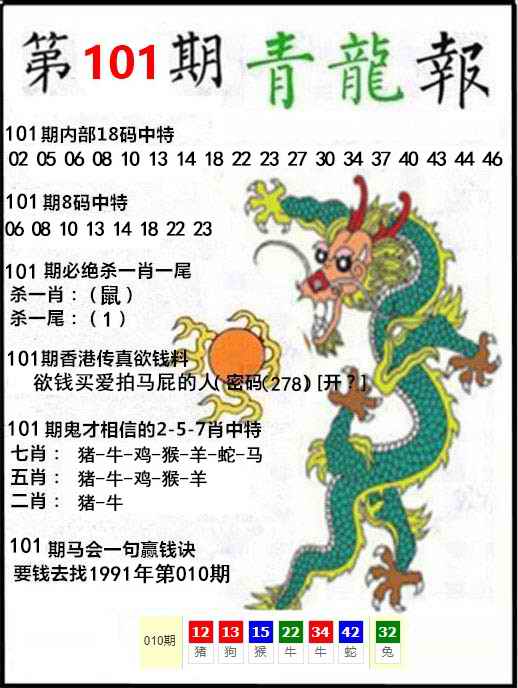 第101期青龍報
101期内部18码中特
02 05 06 08 10 13 14 18 22 23 27 30 34 37 40 43 44 46
101期8码中特
06 08 10 13 14 18 22 23
101期必绝杀一肖一尾
杀一肖：（鼠）
杀一尾：（1）
101期香港传真欲钱料
欲钱买爱拍马屁的人(密码(278)[开？]
101期鬼才相信的2-5-7肖中特
七肖： 猪-牛-鸡-猴-羊-蛇-马
五肖： 猪-牛-鸡-猴-羊
二肖： 猪-牛
101期马会一句赢钱诀
要钱去找1991年第010期
010期 12 13 15 22 34 42 32
猪 狗 猴 牛 牛 蛇 兔